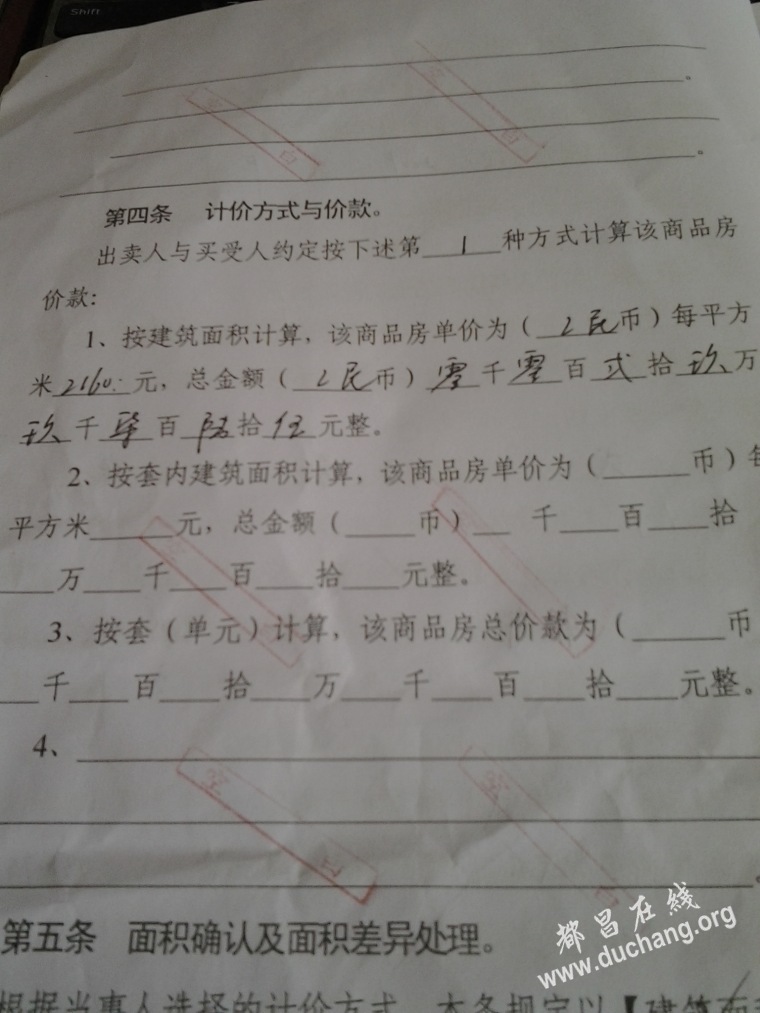 Shift
空白
空白
第四条 计价方式与价款。
出卖人与买受人约定按下述第 1 种方式计算该商品房
价款：
1、按建筑面积计算，该商品房单价为（人民币）每平方
米2160.元，总金额（人民币）零千零百弍拾玖万
玖千柒百陆拾伍元整。
2、按套内建筑面积计算，该商品房单价为（______币）每
平方米______元，总金额（_____币）__ 千____百____拾
____万____千____百____拾____元整。
3、按套（单元）计算，该商品房总价款为（______币
__千____百____拾____万____千____百____拾____元整。
4、
空白
空白
第五条 面积确认及面积差异处理。
都昌在线
www.duchang.org
根据当事人选择的计价方式，本条规定以【建筑面